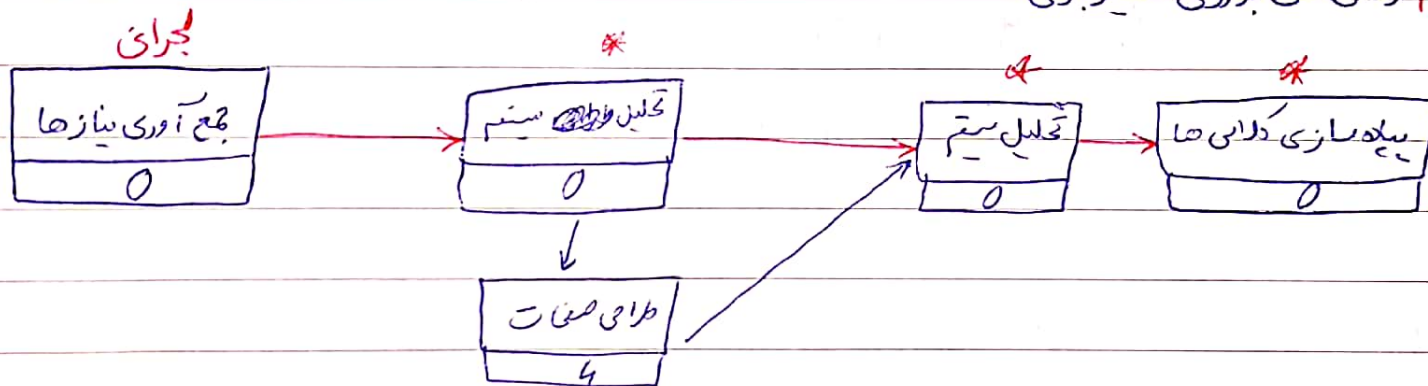 بحرانی * * *
جمع آوری نیازها
0
تحلیل سیستم
0
تحلیل سیستم
0
پیاده سازی کلاس ها
0
طراحی صفحات
4